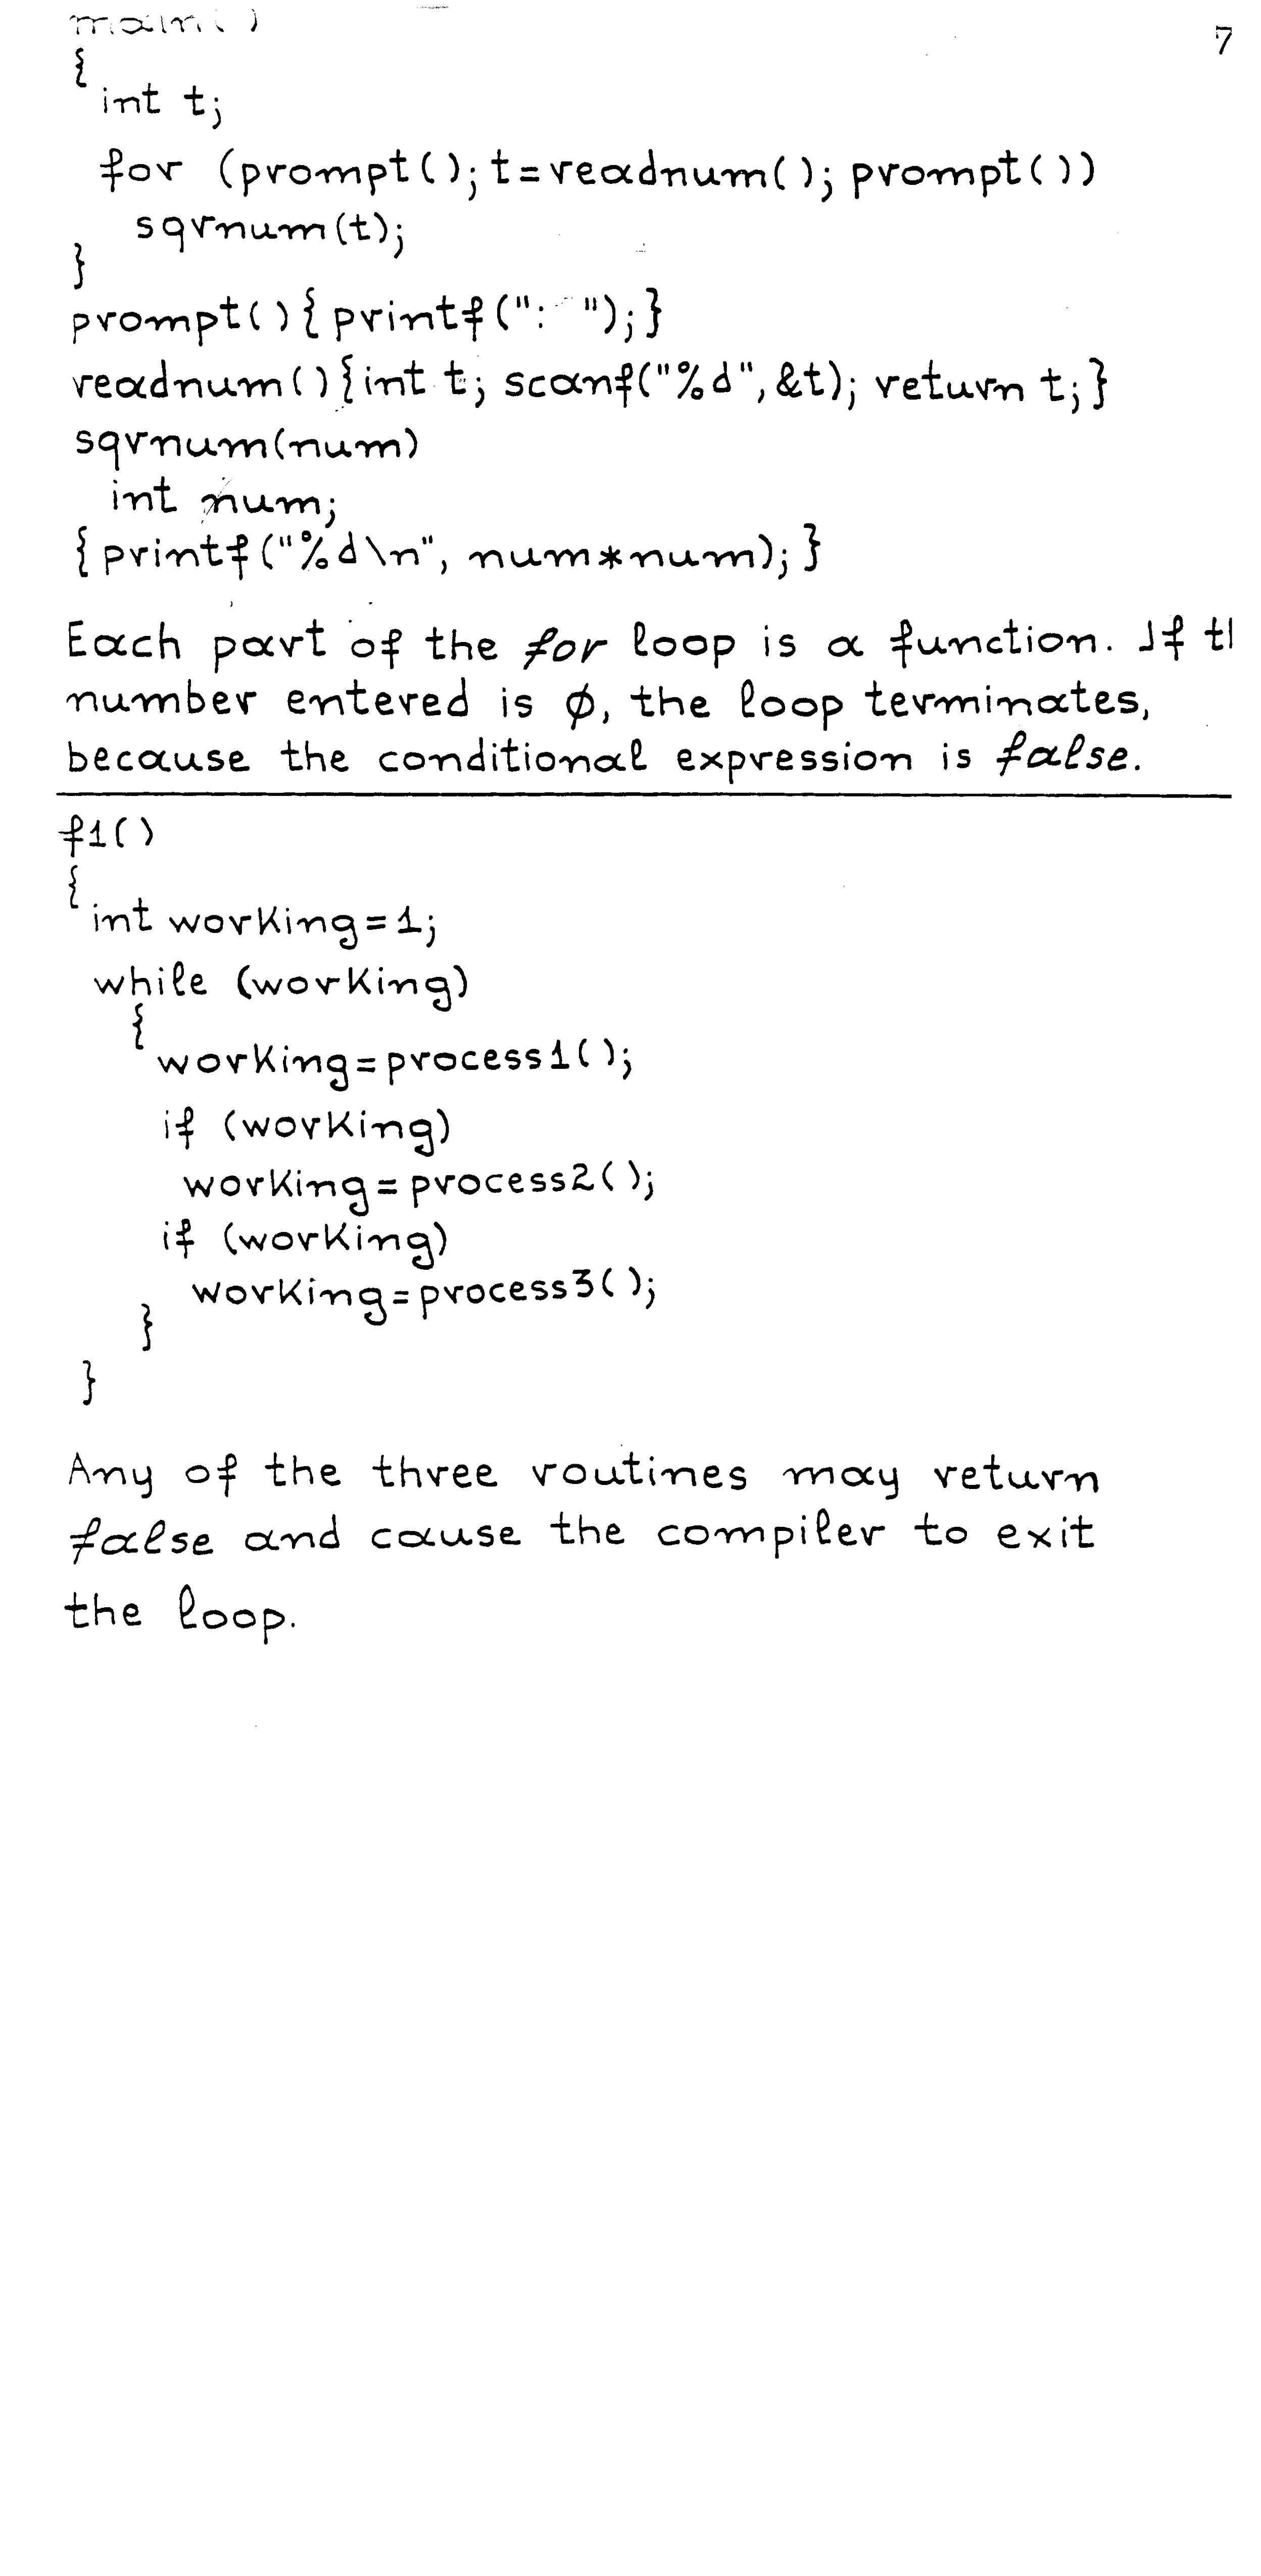 main()
7
{
int t;
for (prompt(); t=readnum(); prompt())
sqrnum(t);
}
prompt(){printf(": ");}
readnum(){int t; scanf("%d",&t); return t;}
sqrnum(num)
int num;
{printf("%d\n", num*num);}
Each part of the for loop is a function. If
number entered is ø, the loop terminates,
because the conditional expression is false.
f1()
{
int working=1;
while (working)
{
working=process1();
if (working)
working=process2();
if (working)
working=process3();
}
}
Any of the three routines may return
false and cause the compiler to exit
the loop.